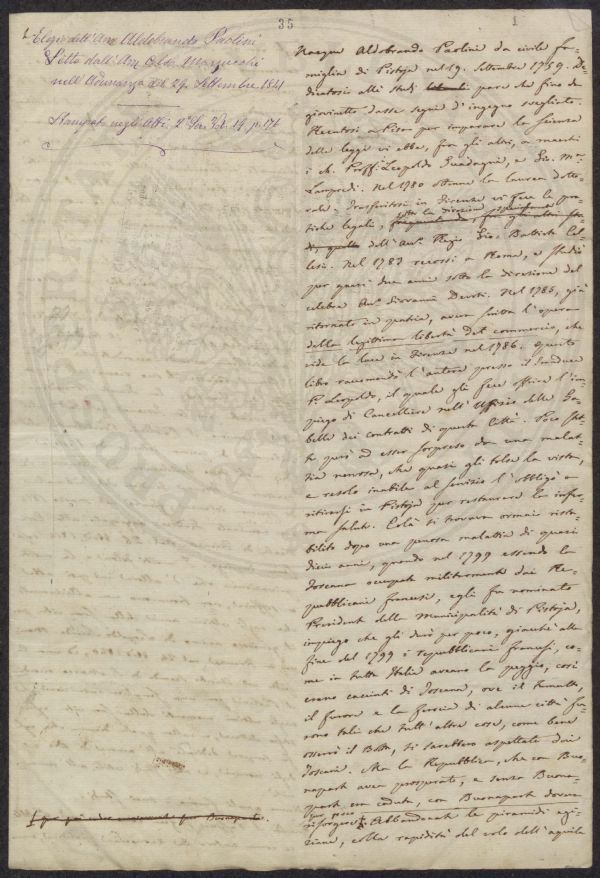 35
1
Elogio dell'Avv. Aldobrando Paolini
Letto dall'Avv. Ald.
nell'Adunanza del 29. Settembre 1841
Stampato negli Atti. 2ª Ser. Vol. 19. p. 176
Nacque Aldobrando Paolini da civile fa-
miglia di Pistoja nel 19. Settembre 1759. De-
dicatosi alli studj parve che fino da
giovinetto dasse segni d'ingegno svegliato.
Recatosi a Pisa per imparare la scienza
delle leggi vi ebbe, fra gli altri, a maestri
i ch. Proff. Leopoldo Guadagni, e Gio. M.ª
Lampredi. Nel 1780 ottenne la laurea dotto-
rale. Trasferitosi in Firenze vi fece le pra-
tiche legali, sotto la direzione
dell'Avv. Regio Gio. Battista Cel-
lesi. Nel 1783 recossi a Roma, e studiò
per quasi due anni sotto la direzione del
celebre Avv. Giovanni Devoti. Nel 1785, già
ritornato in patria, aveva scritta l'opera
della legittima libertà del commercio, che
vide la luce in Firenze nel 1786. Questo
libro raccomandò l'autore presso il Granduca
P. Leopoldo, il quale gli fece offrire l'im-
piego di Cancelliere nell'Uffizio delle Ga-
belle dei contratti di questa Città. Poco stet-
te però ad esser sorpreso da una malat-
tia nervosa, che quasi gli tolse la vista,
e resolo inabile al servizio l'obbligò a
ritirarsi in Pistoja per restaurare la infer-
ma salute. Colà si trovava ormai rista-
bilito dopo una penosa malattia di quasi
dieci anni, quando nel 1799 essendo la
Toscana occupata militarmente dai Re-
pubblicani francesi, egli fu nominato
Presidente della Municipalità di Pistoja,
impiego che gli durò per poco, giacchè alla
fine del 1799 i repubblicani francesi, co-
me in tutta Italia aveano la peggio, così
erano cacciati di Toscana, ove il tumulto,
il furore e la ferocia di alcune città fu-
rono tali che tutt'altra cosa, come bene
osservò il Botta, si sarebbero aspettata dai
Toscani. Ma la Repubblica, che con Buo-
naparte avea prosperato, e senza Buona-
parte era caduta, con Buonaparte dovea
risorgere. Abbandonate le piramidi egi-
ziane, colla rapidità del volo dell'aquila